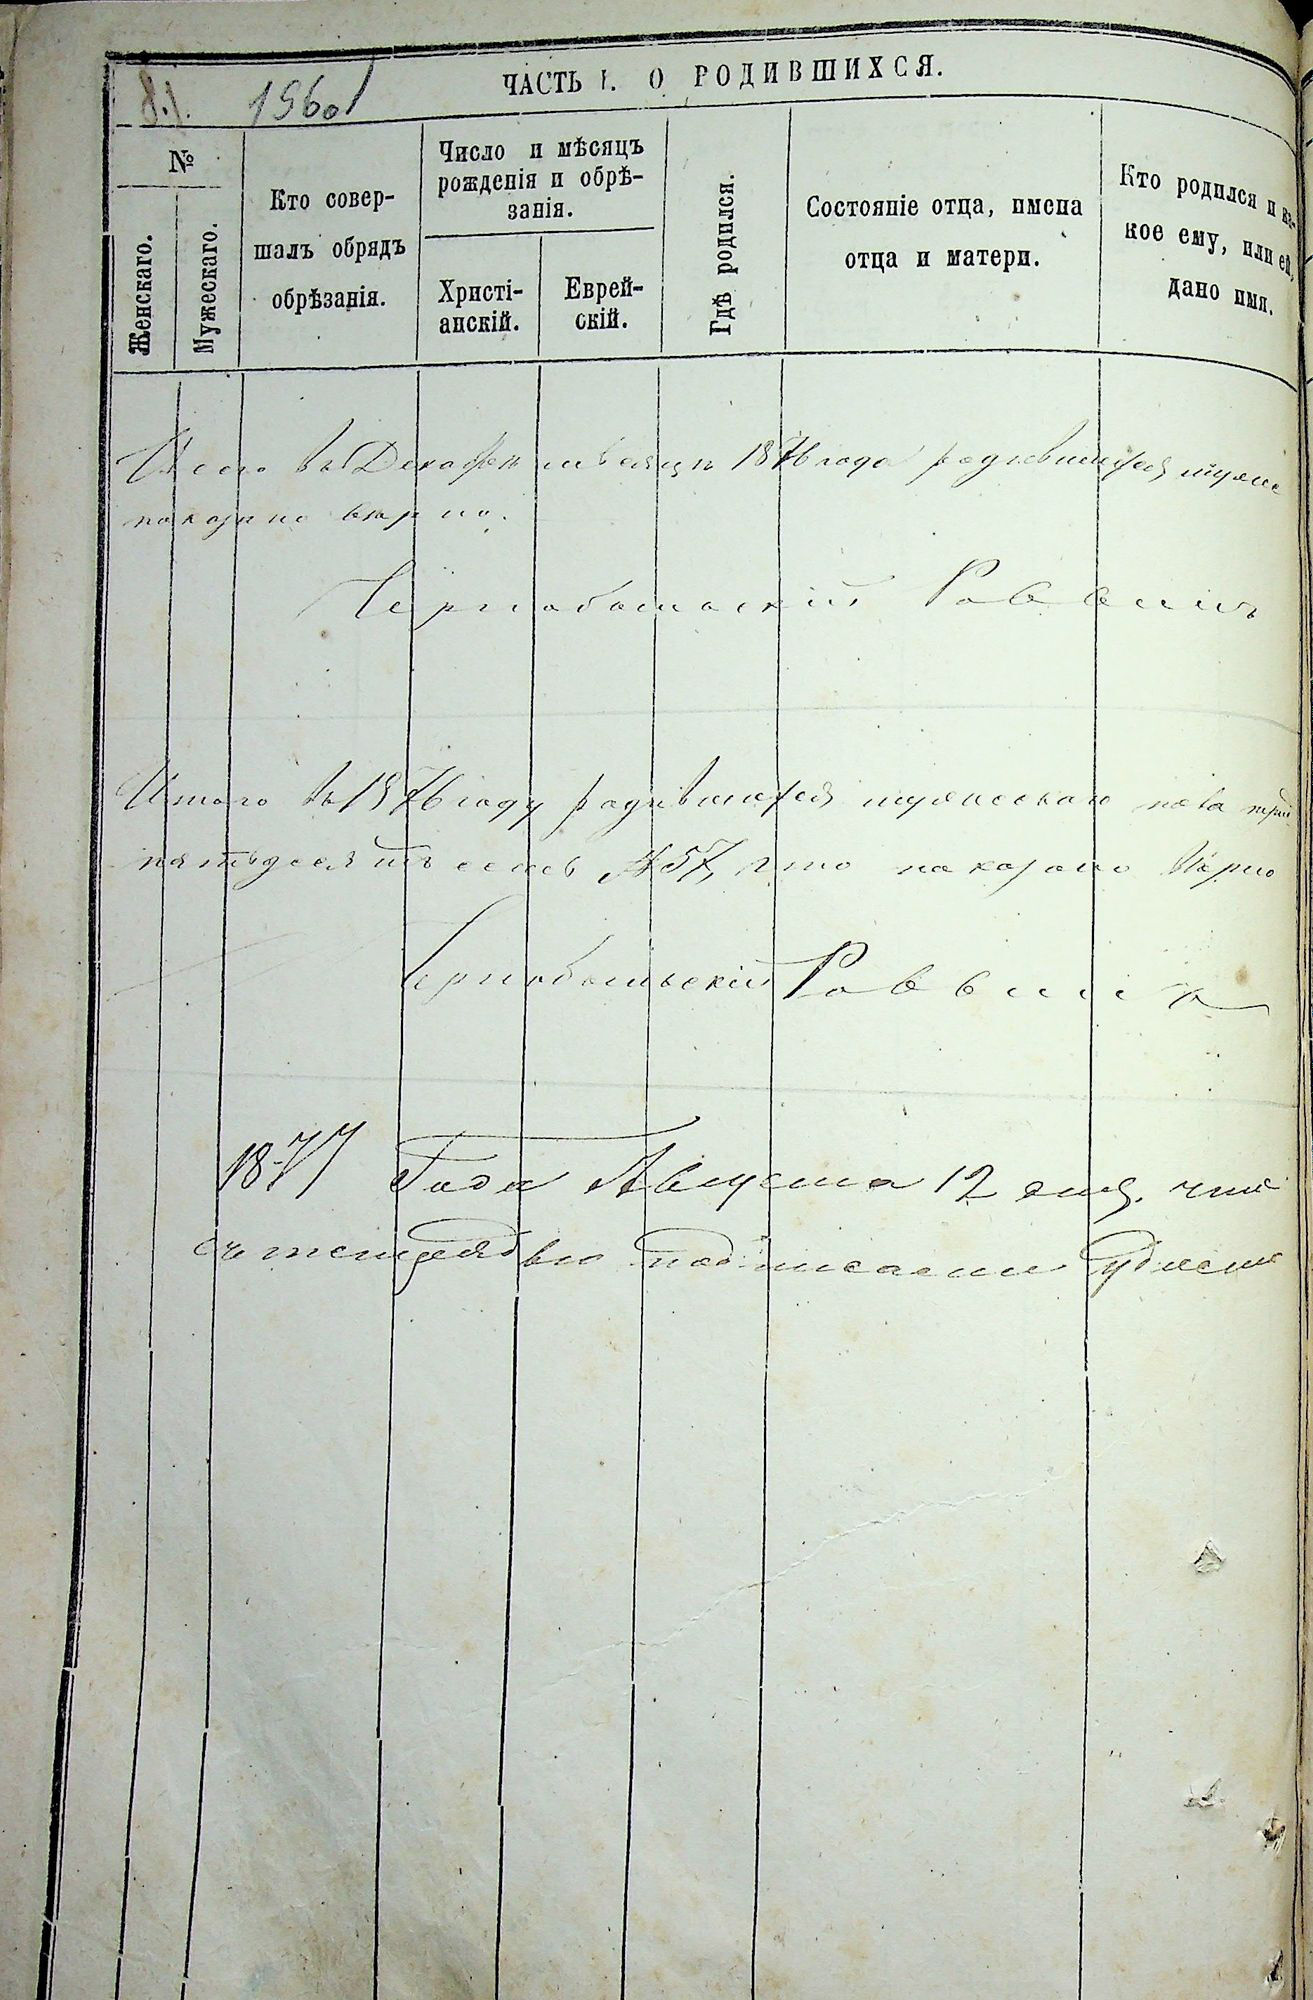 ЧАСТЬ I. О РОДИВШИХСЯ.
1960
№
Женскаго.
Мужескаго.
Кто совер-
шалъ обрядъ
обрѣзанія.
Число и мѣсяцъ
рожденія и обрѣ-
занія.
Христі-
анскій.
Еврей-
скій.
Гдѣ родился.
Состояніе отца, имена
отца и матери.
Кто родился и ка-
кое ему, или ей,
дано имя.
Всего въ Декабрѣ мѣсяцѣ 1876 года родившихся муже
показано вѣрно.
Чернобыльскій Раввинъ
Итого въ 1876 году родившихся мужескаго пола
пятьдесятъ семь 57, что показано вѣрно
Чернобыльскій Раввинъ
1877 Года Августа 12 дня
подписали